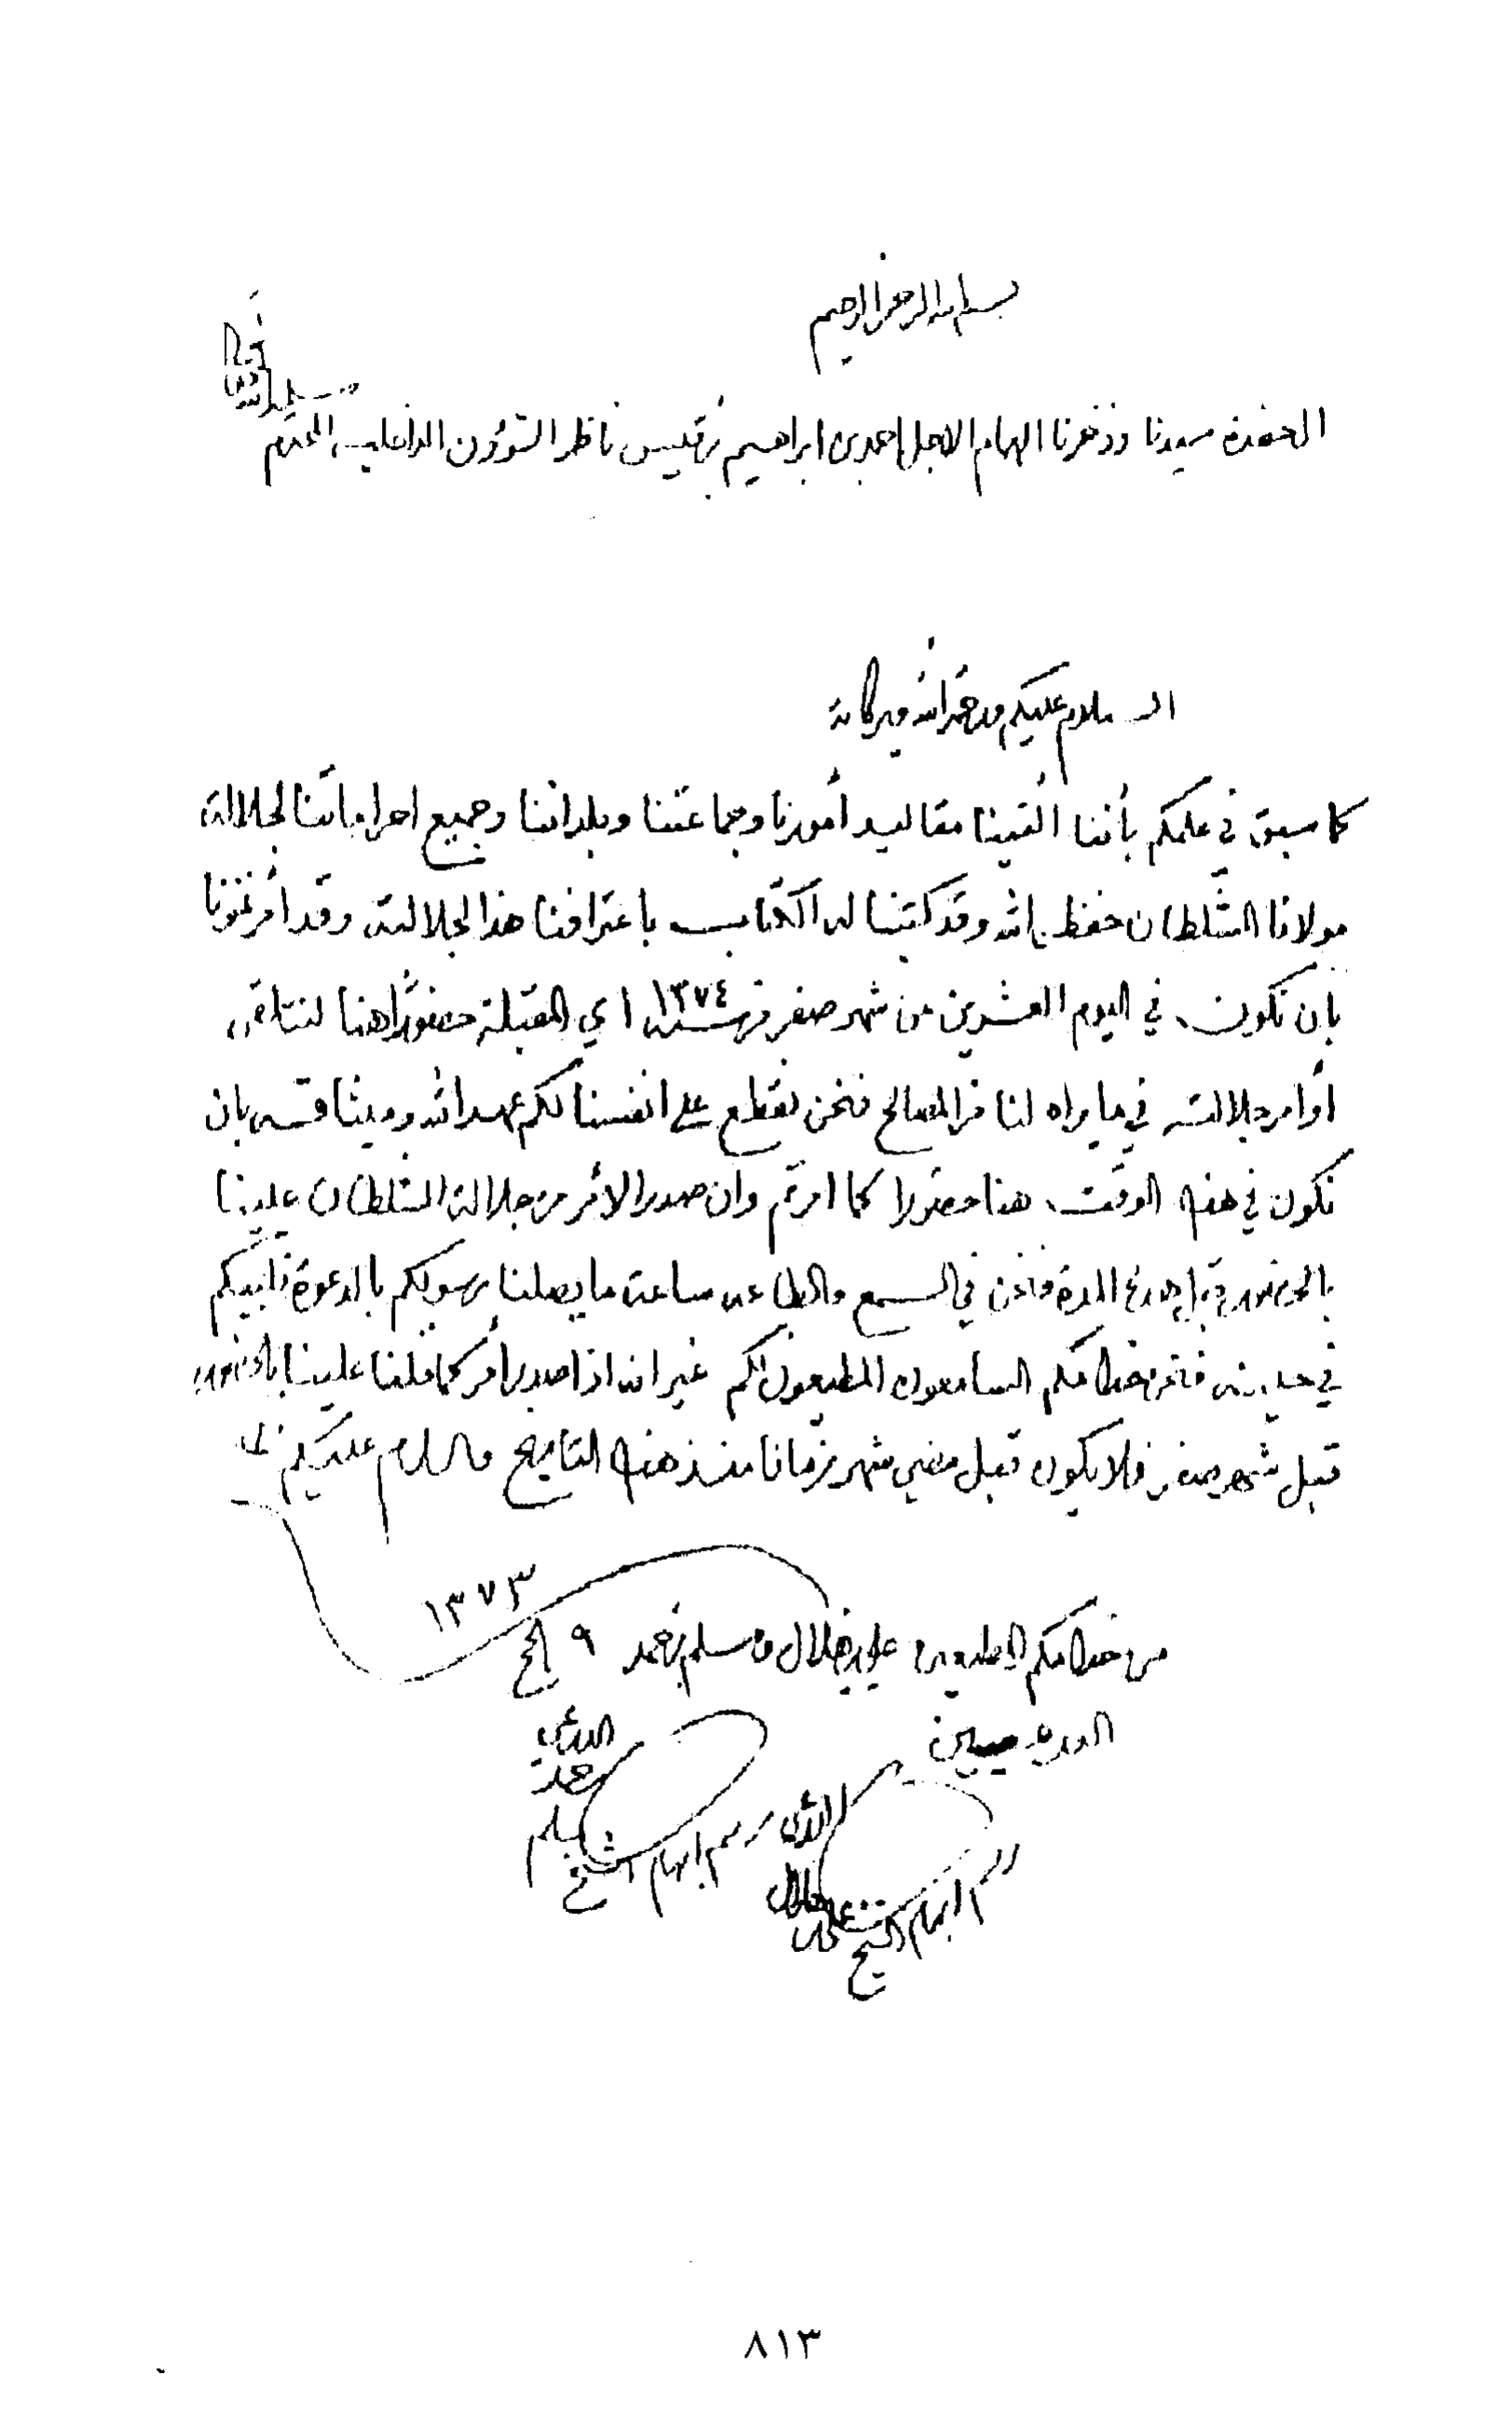 بسم الله الرحمن الرحيم
الى حضرة سيدنا وذخرنا الهمام الاجل احمد بن ابراهيم بن قيس ناظر الشؤون الداخلية المحترم
سلمه الله
السلام عليكم ورحمة الله وبركاته
كما سبق في علمكم بأننا ألقينا مقاليد أمورنا وجماعتنا وبلداننا وجميع احراماتنا لجلالة
مولانا السلطان حفظه الله وقد كتبنا له الكتاب باعترافنا هذا لجلالته وقد أمرتمونا
بان نكون في اليوم العشرين من شهر صفر من سنة ١٣٧٤ اي المقبلة حضورا هنا لنتلقى
أوامر جلالته في ما يراه لنا من المصالح فنحن نقطع على انفسنا لكم عهد الله وميثاقه بان
نكون في هذه الوقت هنا حضورا كما امرتم وان صدر الأمر من جلالة السلطان علينا
بالحضور قبل هذه المدة فنحن في السمع والطاعة ساعة ما يصلنا رسولكم بالدعوة نلبيكم
في حينه فنحن خدامكم السامعون المطيعون لكم غير انه اذا صدر أمر كما قلنا علينا بالحضور
قبل شهر صفر فلا يكون قبل مضي شهر زمانا منذ هذه التاريخ والسلام عليكم
١٣٧٣
من خدامكم المطيعين علي بن هلال و سليم بن حمد ٩ الحج
الدرعيين
الدرعي
حمد
رسم ابهام الشيخ سليم
رسم ابهام الشيخ علي بن هلال الدرعي
٨١٣